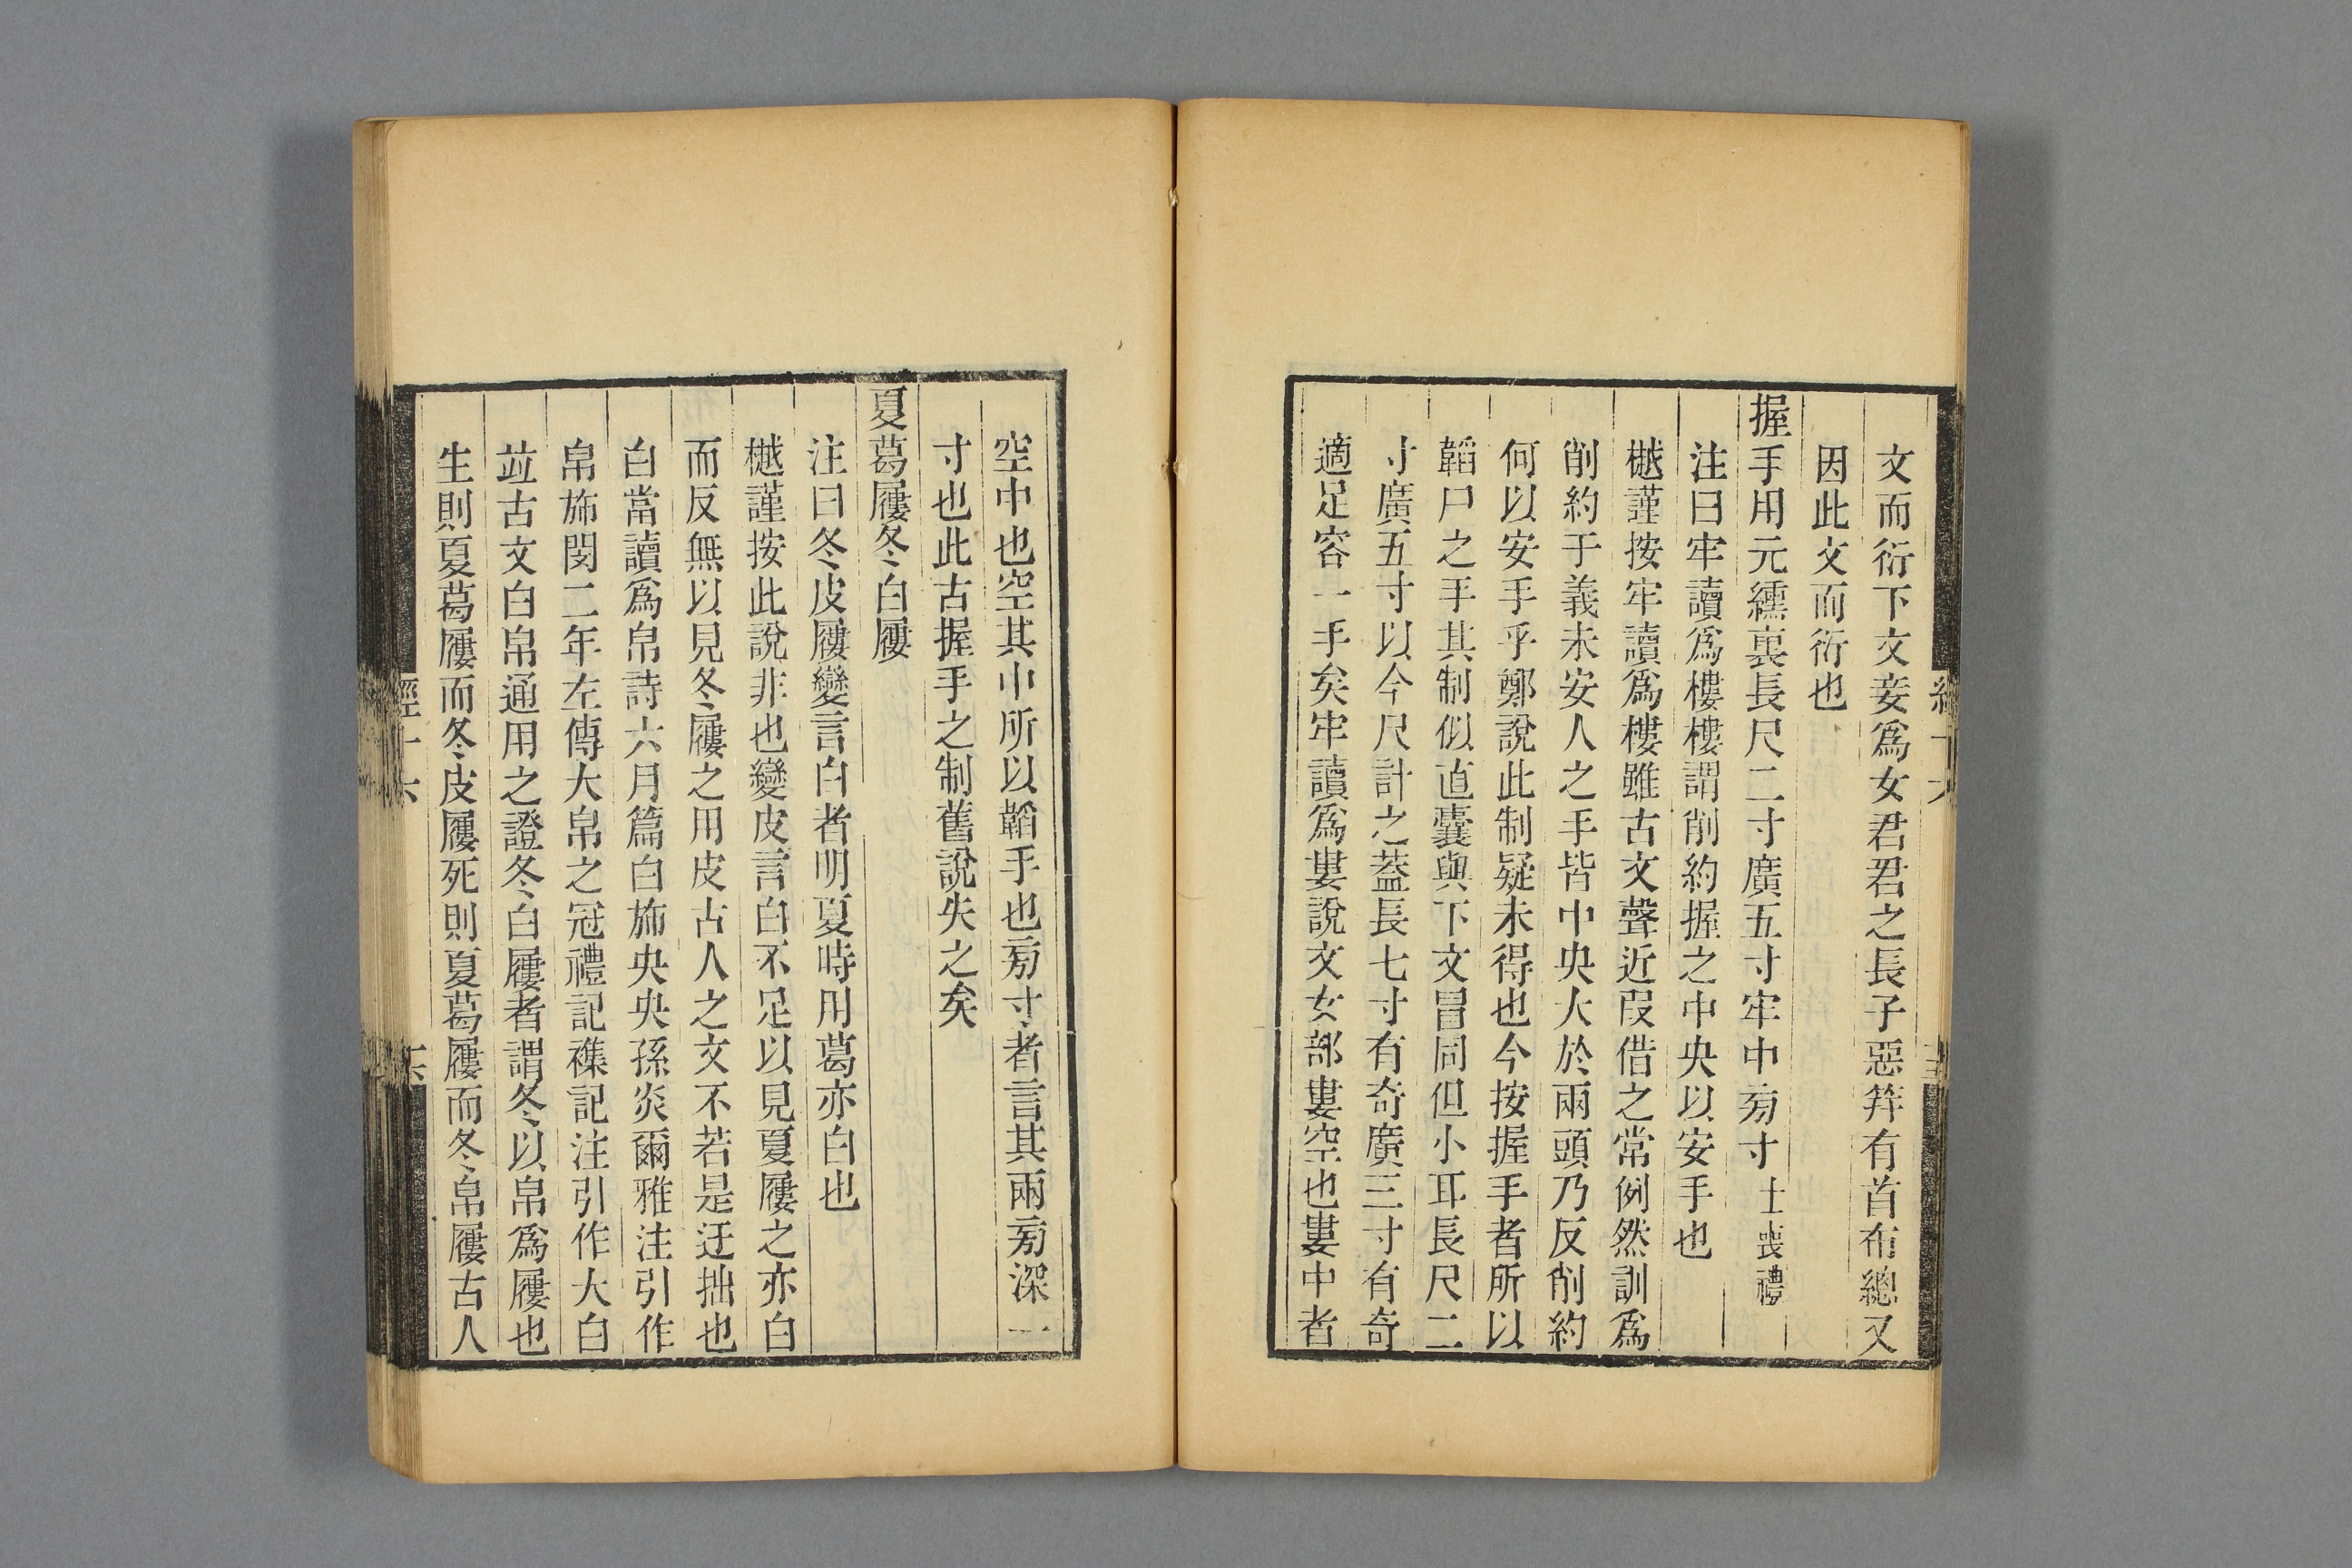 文而衍下文妾爲女君君之長子惡笄有首布總又
因此文而衍也
握手用元纁裏長尺二寸廣五寸牢中㫄寸士喪禮
注曰牢讀爲樓樓謂削約握之中央以安手也
樾謹按牢讀爲樓雖古文聲近叚借之常例然訓爲
削約于義未安人之手皆中央大於兩頭乃反削約
何以安手乎鄭說此制疑未得也今按握手者所以
韜尸之手其制似直囊與下文冒同但小耳長尺二
寸廣五寸以今尺計之葢長七寸有奇廣三寸有奇
適足容一手矣牢讀爲婁說文女部婁空也婁中者
空中也空其中所以韜手也㫄寸者言其兩㫄深一
寸也此古握手之制舊說失之矣
夏葛屨冬白屨
注曰冬皮屨變言白者明夏時用葛亦白也
樾謹按此說非也變皮言白不足以見夏屨之亦白
而反無以見冬屨之用皮古人之文不若是迂拙也
白當讀爲帛詩六月篇白斾央央孫炎爾雅注引作
帛斾閔二年左傳大帛之冠禮記襍記注引作大白
竝古文白帛通用之證冬白屨者謂冬以帛爲屨也
生則夏葛屨而冬皮屨死則夏葛屨而冬帛屨古人
經十六